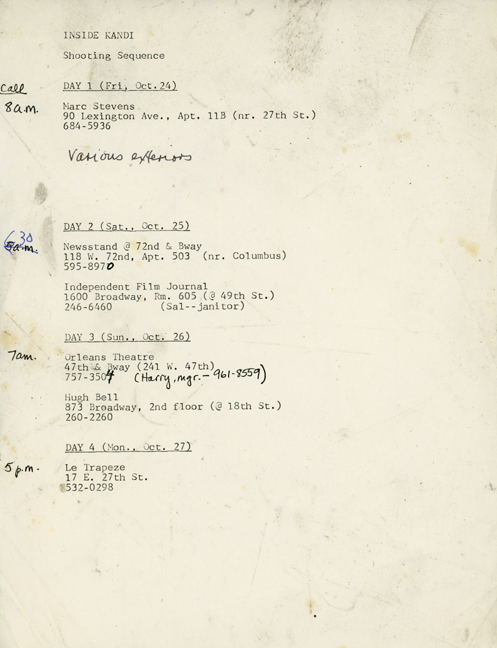 INSIDE KANDI
Shooting Sequence
Call DAY 1 (Fri, Oct.24)
8a.m. Marc Stevens
90 Lexington Ave., Apt. 11B (nr. 27th St.)
684-5936
Various exteriors
DAY 2 (Sat., Oct. 25)
6:30
a.m. Newsstand @ 72nd & Bway
118 W. 72nd, Apt. 503 (nr. Columbus)
595-8970
Independent Film Journal
1600 Broadway, Rm. 605 (@ 49th St.)
246-6460 (Sal--janitor)
DAY 3 (Sun., Oct. 26)
7am. Orleans Theatre
47th & Bway (241 W. 47th)
757-3504 (Harry, mgr. - 961-8559)
Hugh Bell
873 Broadway, 2nd floor (@ 18th St.)
260-2260
DAY 4 (Mon., Oct. 27)
5 p.m. Le Trapeze
17 E. 27th St.
532-0298